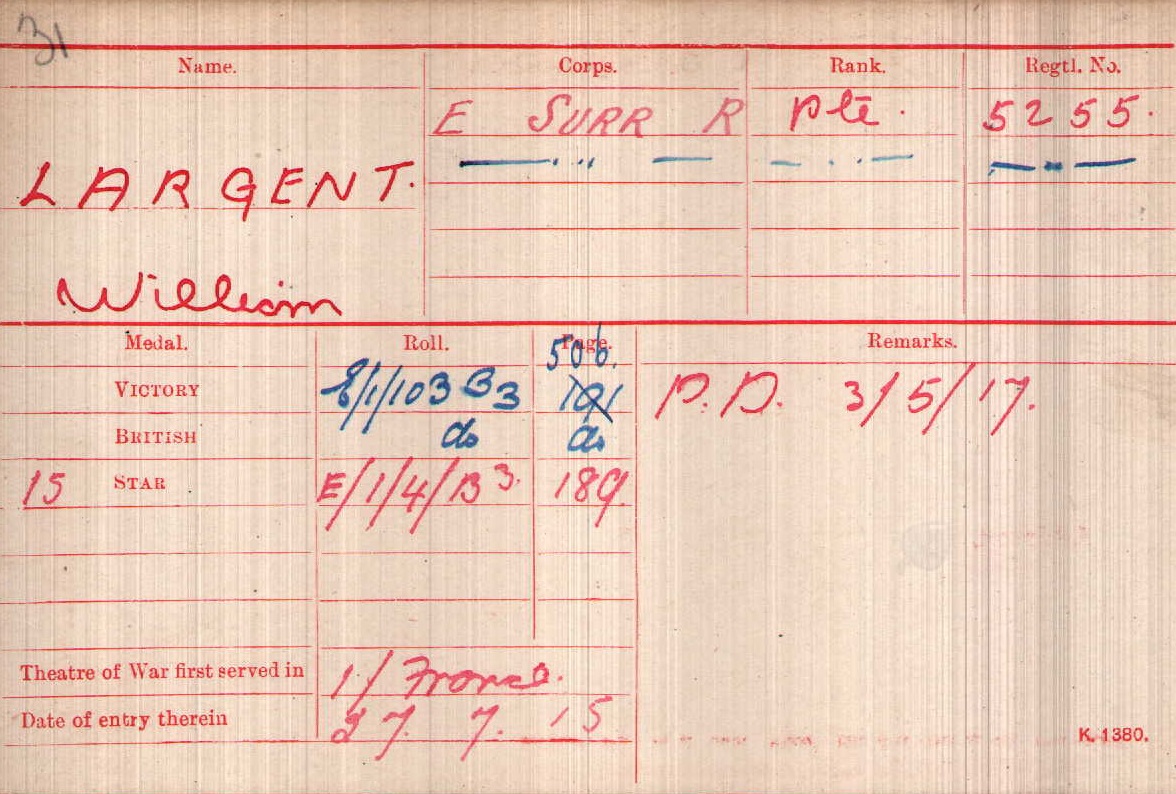 31
Name. Corps. Rank. Regtl. No.
E SURR R Pte. 5255.
LARGENT.
— " — — " — — " —
William
Medal. Roll. Page. Remarks.
506.
VICTORY E/1/103 B3 191 P.D. 3/5/17.
BRITISH do do
15 STAR E/1/4/B3. 189.
Theatre of War first served in 1/ France.
Date of entry therein 27. 7. 15
K. 1380.